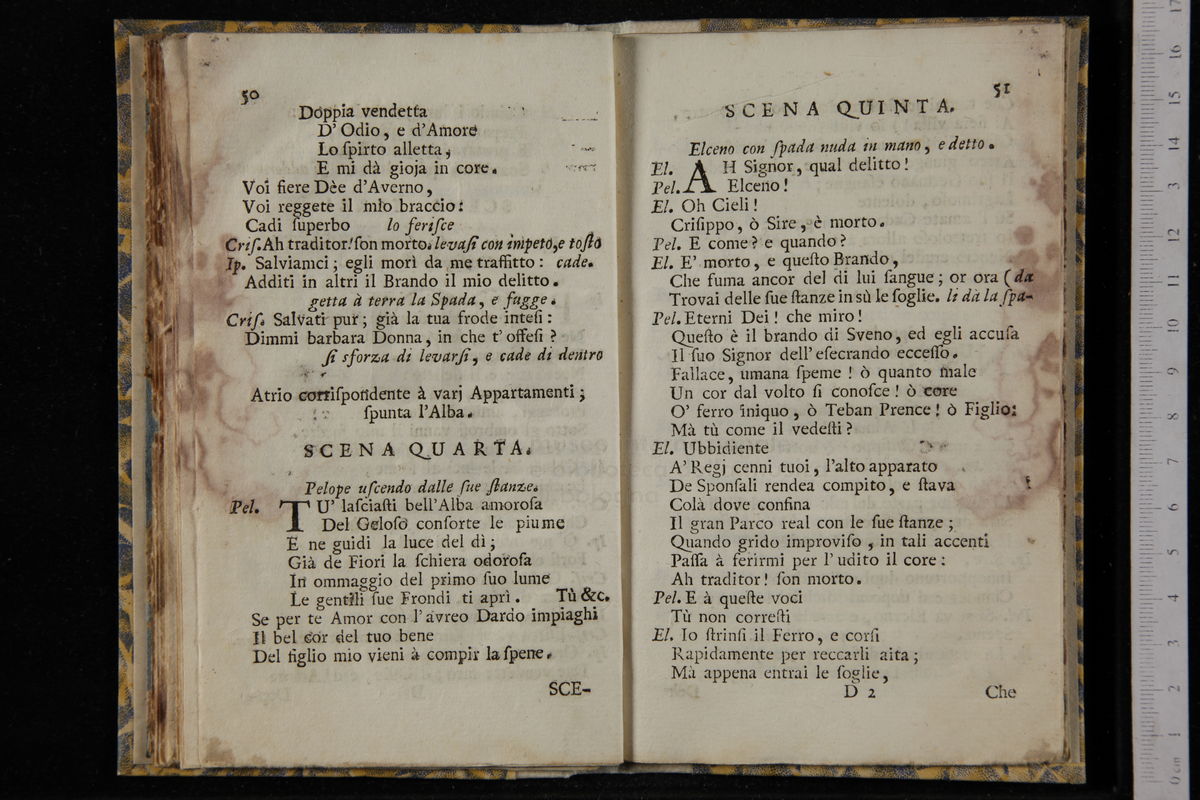 50
Doppia vendetta
D' Odio, e d'Amore
Lo ſpirto alletta,
E mi dà gioja in core.
Voi fiere Dèe d'Averno,
Voi reggete il mio braccio:
Cadi ſuperbo lo feriſce
Criſ. Ah traditor! ſon morto. levaſi con impeto, e toſto
Ip. Salviamci; egli morì da me traffitto: cade.
Additi in altri il Brando il mio delitto.
getta à terra la Spada, e fugge.
Criſ. Salvati pur; già la tua frode inteſi:
Dimmi barbara Donna, in che t'offeſi?
ſi sforza di levarſi, e cade di dentro
Atrio corriſpondente à varj Appartamenti;
ſpunta l'Alba.
SCENA QUARTA.
Pelope uſcendo dalle ſue ſtanze.
Pel. TU' laſciaſti bell'Alba amoroſa
Del Geloſo conſorte le piume
E ne guidi la luce del dì;
Già de Fiori la ſchiera odoroſa
In ommaggio del primo ſuo lume
Le gentili ſue Frondi ti aprì. Tù &c.
Se per te Amor con l'avreo Dardo impiaghi
Il bel cor del tuo bene
Del figlio mio vieni à compir la ſpene.
SCE-
51
SCENA QUINTA.
Elceno con ſpada nuda in mano, e detto.
El. AH Signor, qual delitto!
Pel. Elceno!
El. Oh Cieli!
Criſippo, ò Sire, è morto.
Pel. E come? e quando?
El. E' morto, e queſto Brando,
Che fuma ancor del di lui ſangue; or ora (da
Trovai delle ſue ſtanze in sù le ſoglie. li dà la ſpa-
Pel. Eterni Dei! che miro!
Queſto è il brando di Sveno, ed egli accuſa
Il ſuo Signor dell'eſecrando ecceſſo.
Fallace, umana ſpeme! ò quanto male
Un cor dal volto ſi conoſce! ò core
O' ferro iniquo, ò Teban Prence! ò Figlio:
Mà tù come il vedeſti?
El. Ubbidiente
A' Regj cenni tuoi, l'alto apparato
De Sponſali rendea compito, e ſtava
Colà dove confina
Il gran Parco real con le ſue ſtanze;
Quando grido improviſo, in tali accenti
Paſſa à ferirmi per l'udito il core:
Ah traditor! ſon morto.
Pel. E à queſte voci
Tù non correſti
El. Io ſtrinſi il Ferro, e corſi
Rapidamente per reccarli aita;
Mà appena entrai le ſoglie,
D 2 Che